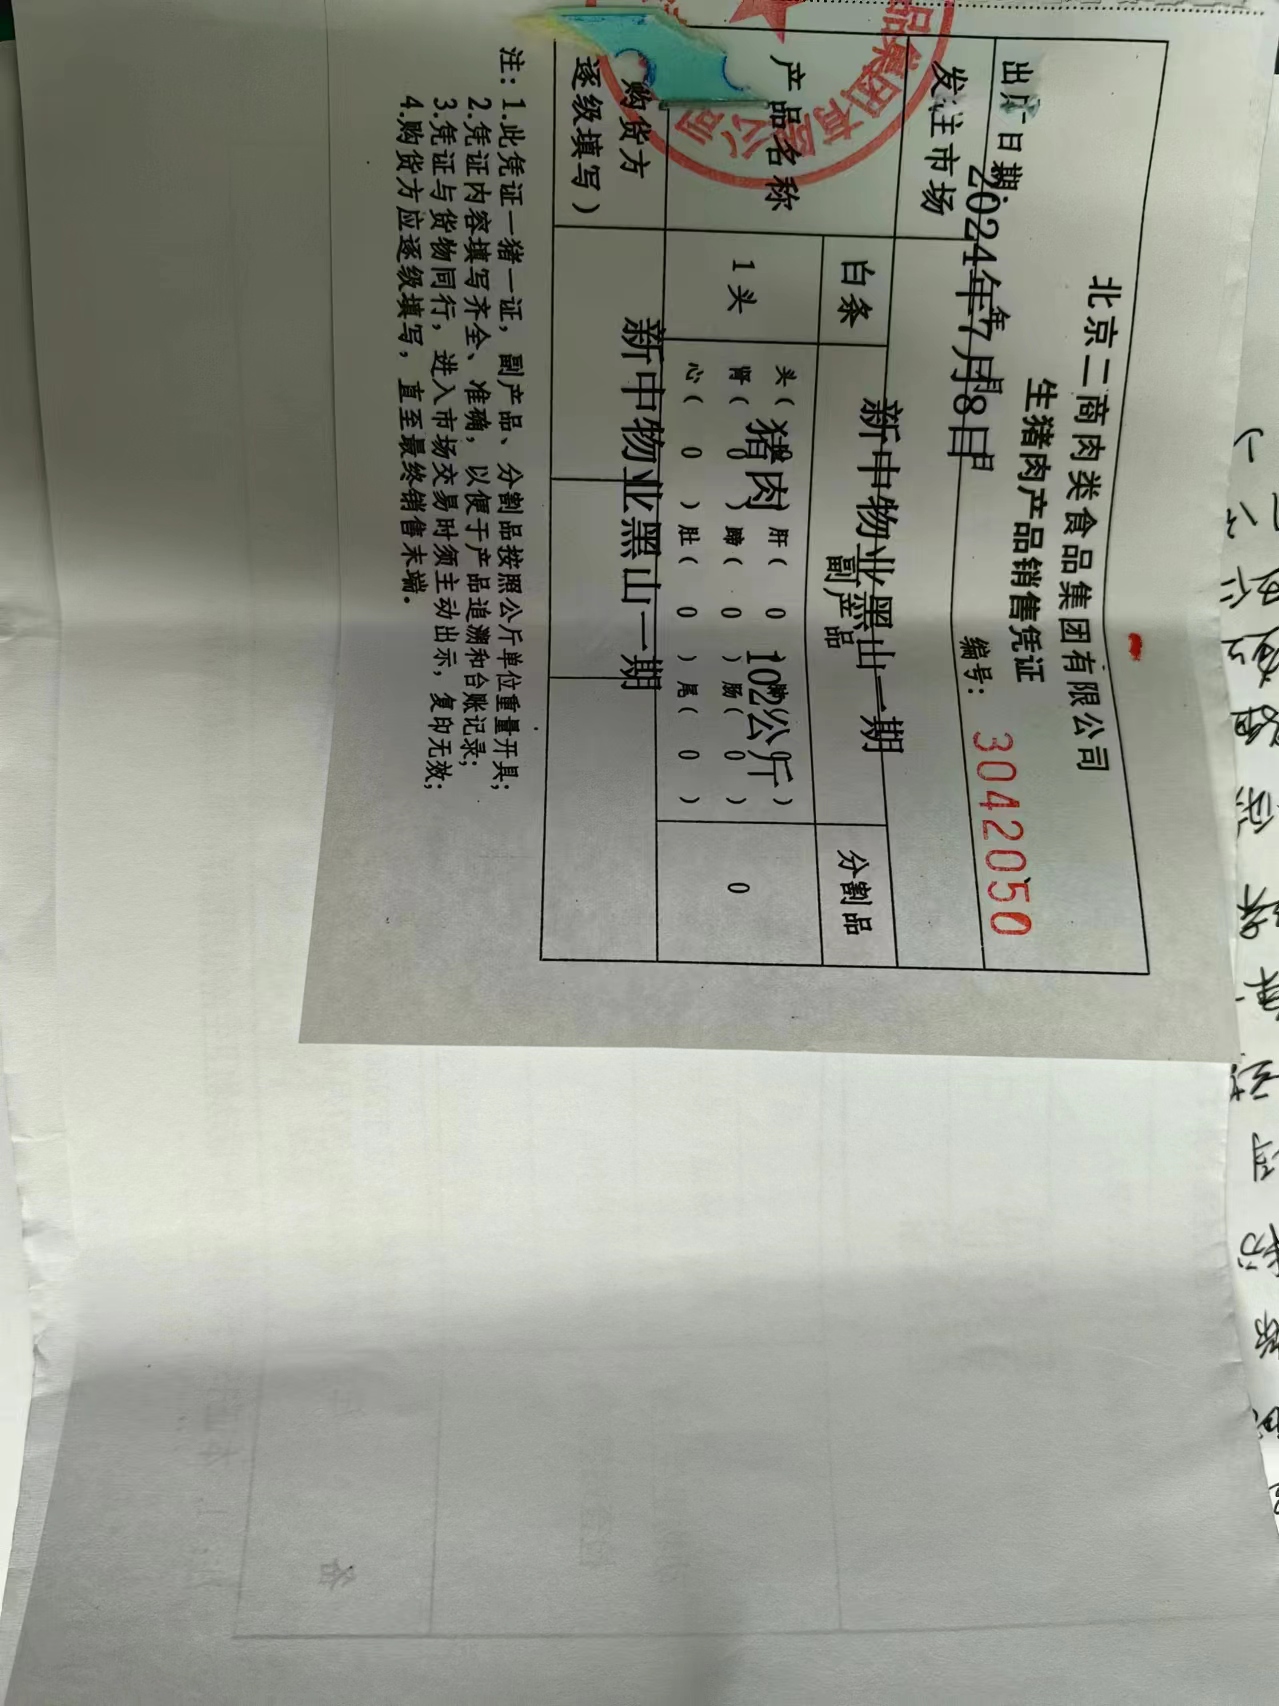 北京二商肉类食品集团有限公司
生猪肉产品销售凭证
编号：3042050
出 日期：2024年7月8日
年 月 日
发往市场 新中物业黑山一期
产品名称 白条 副产品 分割品
猪肉 102公斤
1头 头( 肝( 0
肾( 0 ) 蹄( 0 ) 肠( 0 ) 0
心( 0 ) 肚( 0 ) 尾( 0 )
购货方
逐级填写） 新中物业黑山一期
注：1.此凭证一猪一证，副产品、分割品按照公斤单位重量开具；
2.凭证内容填写齐全、准确，以便于产品追溯和台账记录；
3.凭证与货物同行，进入市场交易时须主动出示，复印无效；
4.购货方应逐级填写，直至最终销售末端。
品集团有限公司